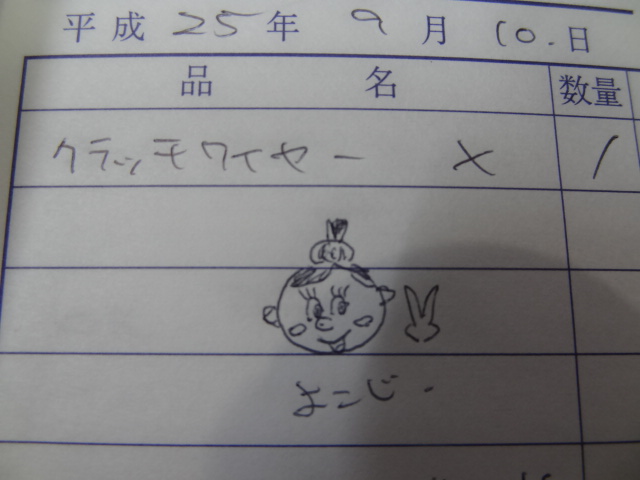 平成 25 年 9 月 10. 日
品 名 数量
クラッチワイヤー × 1
よこじー